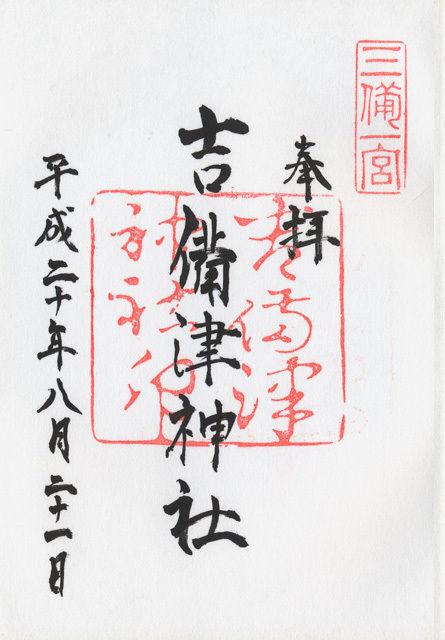 三備一宮
奉拝
吉備津神社
平成二十年八月二十一日